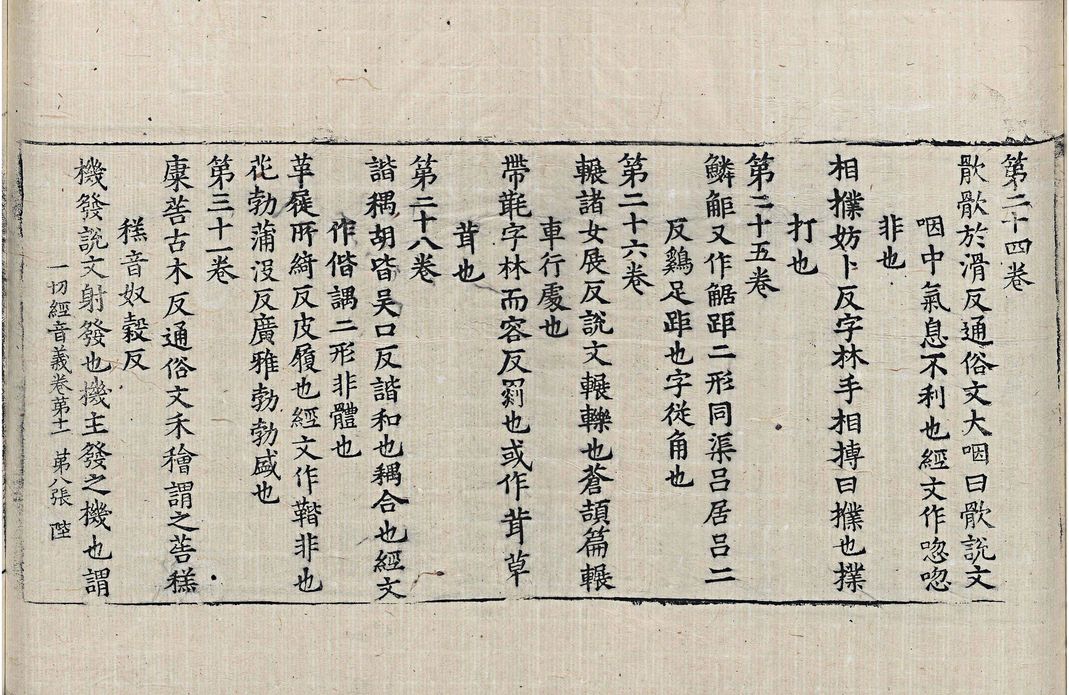 第二十四卷
㱀㱀於滑反通俗文大咽曰㱀說文
咽中氣息不利也經文作唿唿
非也
相撲妨卜反字林手相搏曰撲也撲
打也
第二十五卷
鱗觝又作䠧距二形同渠呂居呂二
反鷄足距也字從角也
第二十六卷
輾諸女展反說文輾轢也蒼頡篇輾
車行處也
帶毦字林而容反罽也或作茸草
茸也
第二十八卷
諧耦胡皆吳口反諧和也耦合也經文
作偕調二形非體也
革屣所綺反皮履也經文作鞜非也
花勃蒲沒反廣雅勃勃盛也
第三十一卷
康䓘古木反通俗文禾穭謂之䓘䅵
䅵音奴穀反
機發說文射發也機主發之機也謂
一切經音義卷第十一 第八張 陛